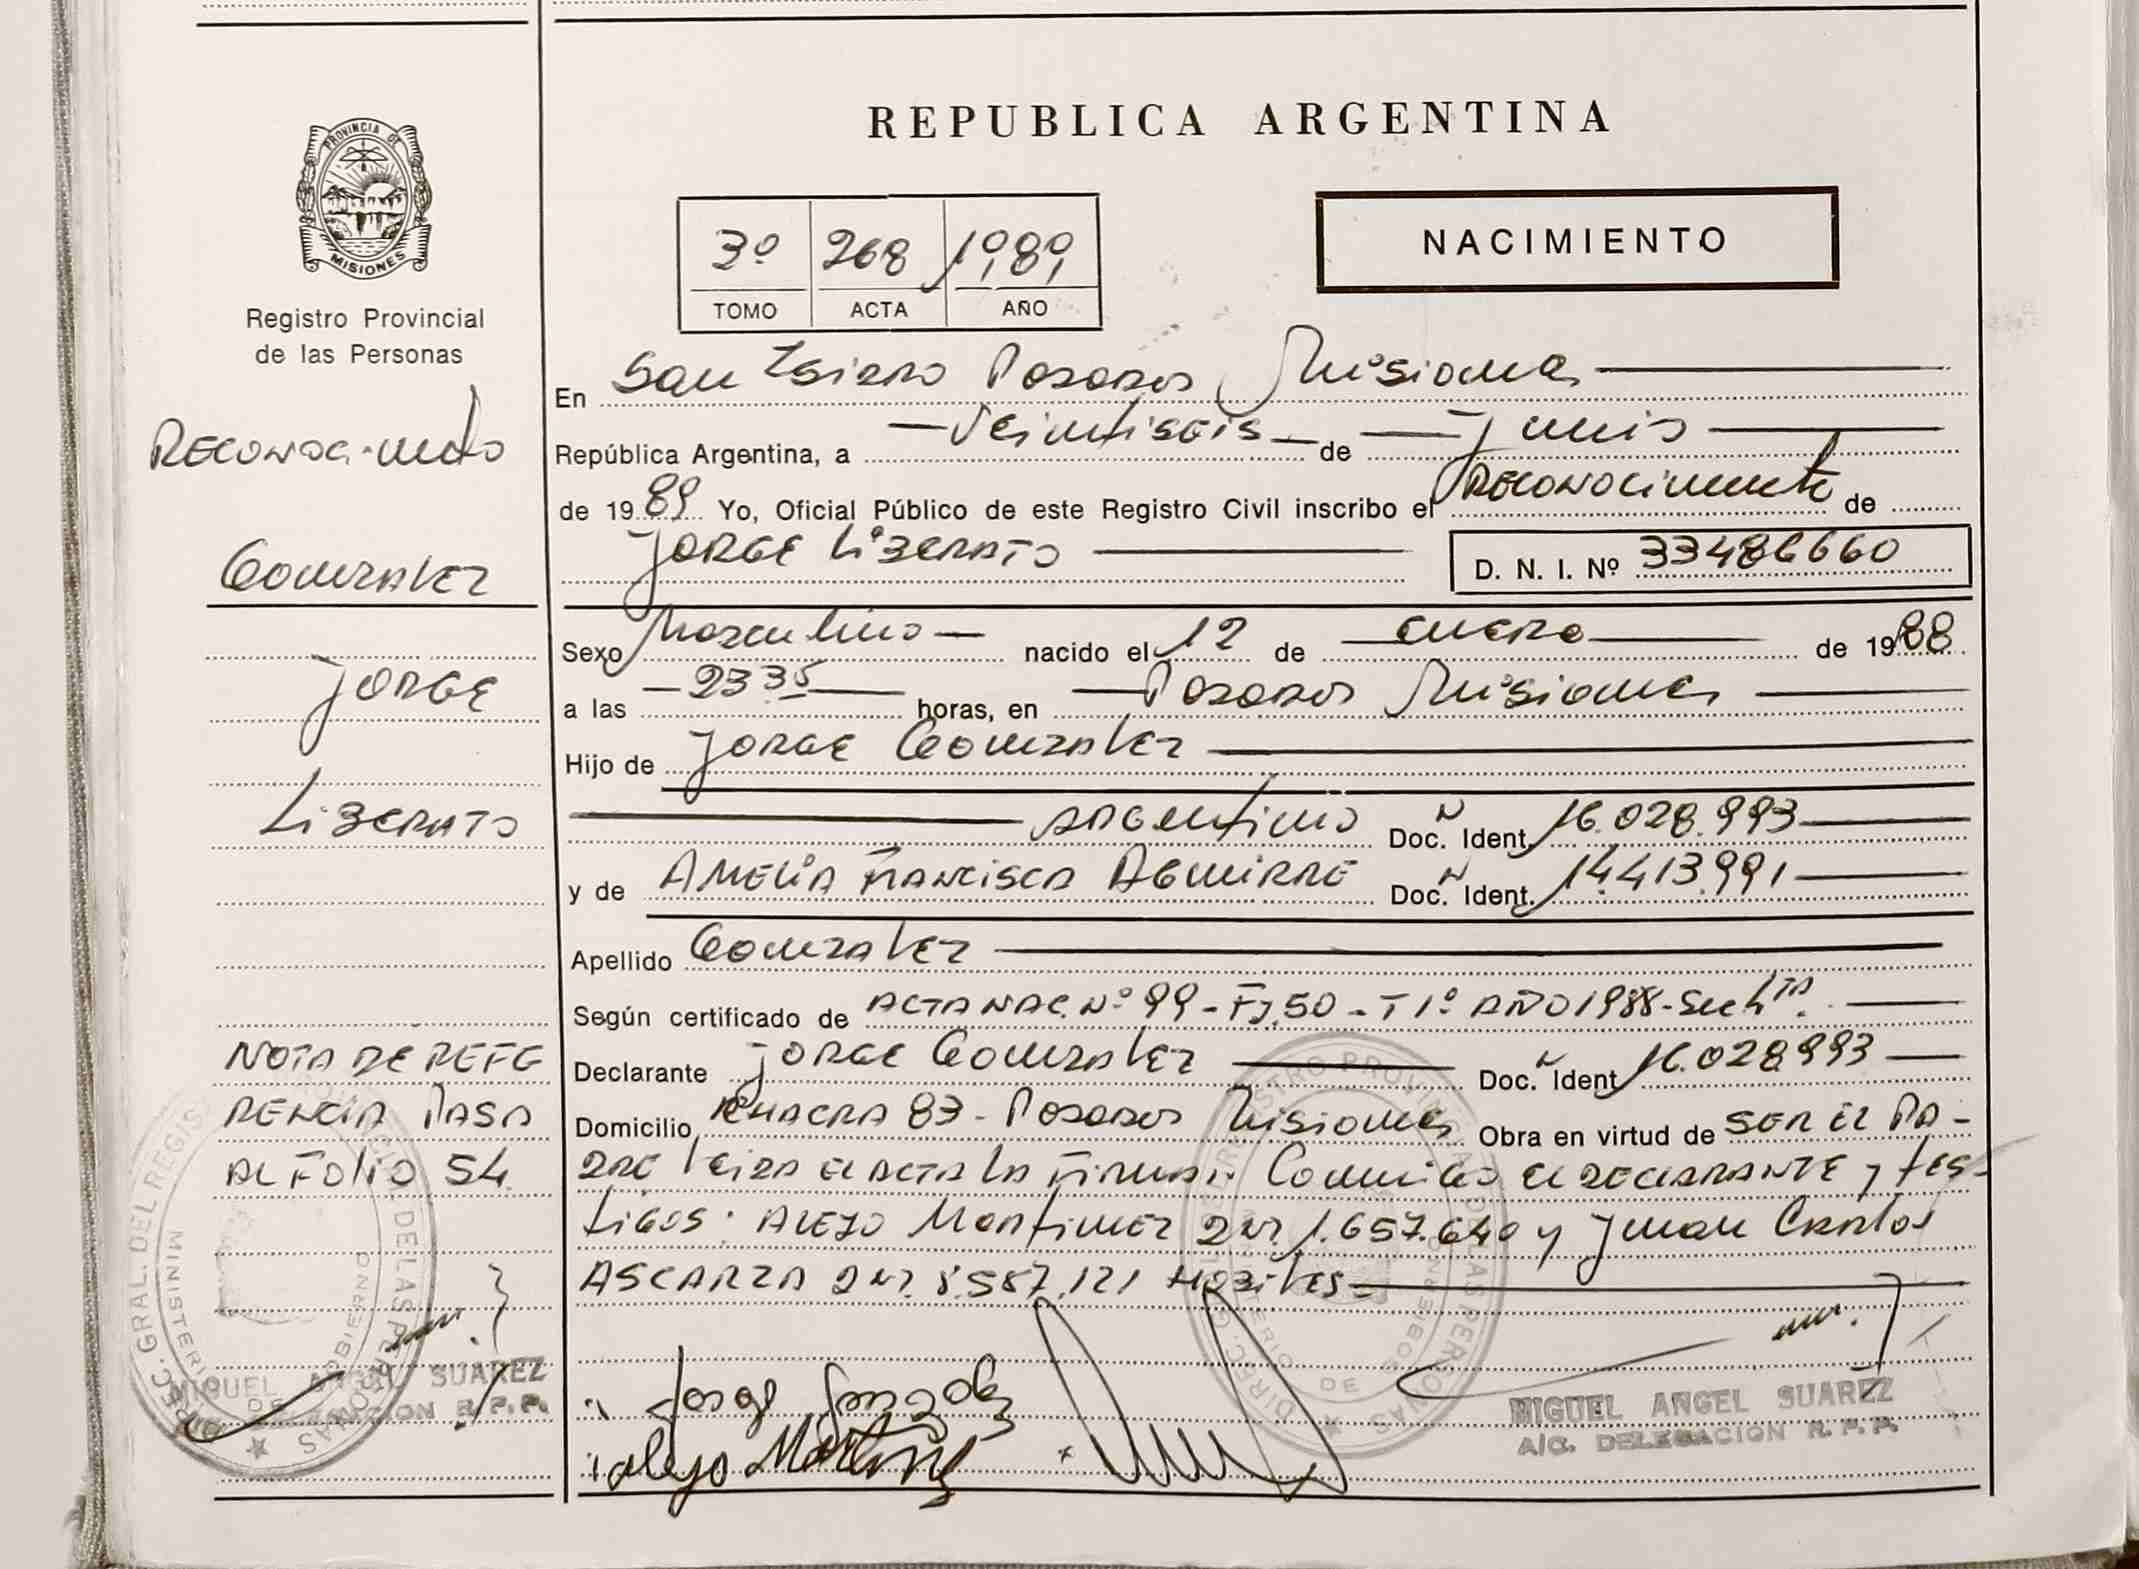 REPUBLICA ARGENTINA
PROVINCIA DE
MISIONES
Registro Provincial
de las Personas
3º 268 1989
TOMO ACTA AÑO
NACIMIENTO
RECONOCIMIENTO
GONZALEZ
JORGE
LIBERATO
NOTA DE REFE
RENCIA PASA
AL FOLIO 54
En San Isidro Posadas Misiones
República Argentina, a Veintiseis de Junio
de 1989 Yo, Oficial Público de este Registro Civil inscribo el RECONOCIMIENTO de
JORGE LIBERATO D. N. I. Nº 33486660
Sexo Masculino nacido el 12 de ENERO de 1988
a las 23 35 horas, en Posadas Misiones
Hijo de JORGE GONZALEZ
ARGENTINO Doc. Ident. N 16.028.993
y de AMELIA FRANCISCA AGUIRRE Doc. Ident. N 14.413.991
Apellido GONZALEZ
Según certificado de ACTA NAC. Nº 99 - Fº 50 - T 1º AÑO 1988 - Sec 4TA.
Declarante JORGE GONZALEZ Doc. Ident N 16.028993
Domicilio CHACRA 83 - Posadas Misiones Obra en virtud de SER EL PA-
DRE LEIDA EL ACTA LA FIRMAN CONMIGO EL DECLARANTE y TES-
TIGOS: ALEJO MARTINEZ DNI. 1.657.640 y JUAN CARLOS
ASCARZA DNI. 8.587.121 HABILES
Jorge Gonzalez
Alejo Martinez
MIGUEL ANGEL SUAREZ
A/C. DELEGACION R. P. P.
MIGUEL ANGEL SUAREZ
DELEGACION R. P. P.
DIREC. GRAL. DEL REGISTRO PROVINCIAL DE LAS PERSONAS
MINISTERIO DE GOBIERNO
DIREC. GRAL. DEL REGISTRO PROVINCIAL DE LAS PERSONAS
MINISTERIO DE GOBIERNO